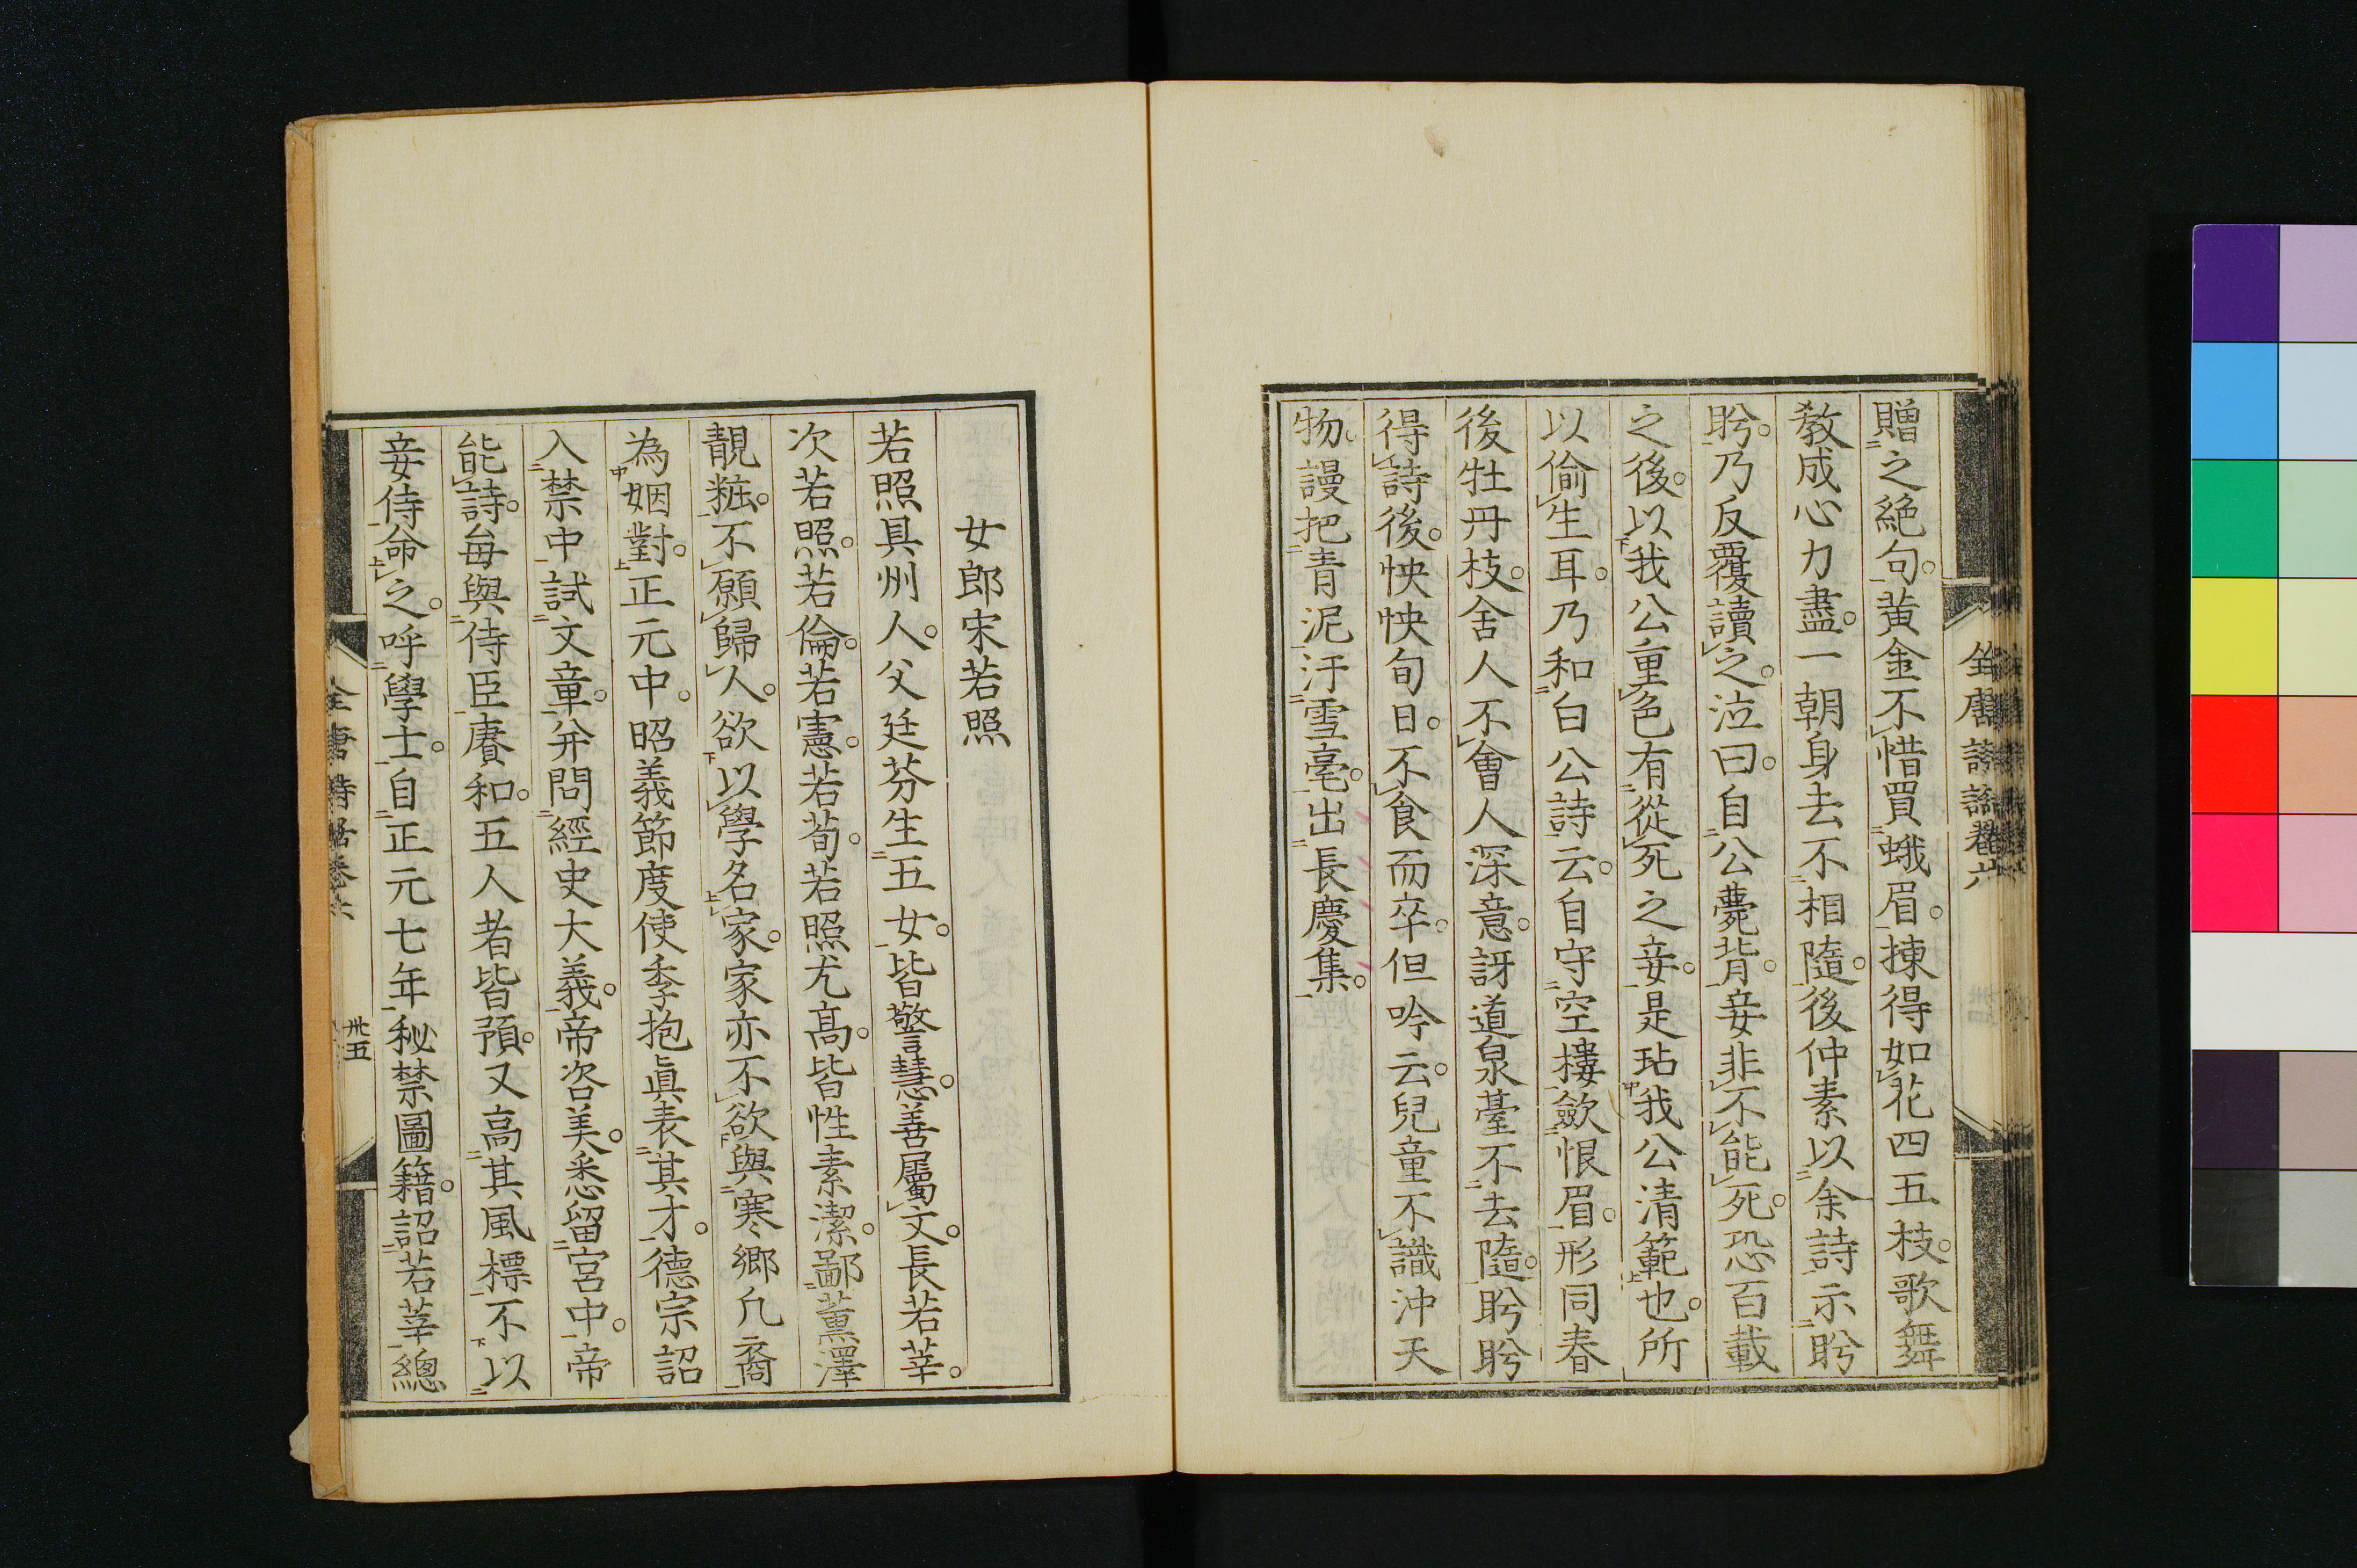 全唐詩話卷六
贈之絶句。黄金不惜買蛾眉。揀得如花四五枝。歌舞
教成心力盡。一朝身去不相隨。後仲素以余詩示盻
盻。乃反覆讀之。泣曰。自公薨背。妾非不能死。恐百載
之後。以我公重色有從死之妾。是玷我公清範也。所
以偷生耳。乃和白公詩云。自守空樓歛恨眉。形同春
後牡丹枝。舍人不會人深意。訝道泉臺不去隨。盻盻
得詩後。怏怏旬日。不食而卒。但吟云。兒童不識沖天
物謾把青泥汙雪毫。出長慶集。
女郎宋若照
若照具州人。父廷芬生五女。皆警慧。善屬文。長若莘。
次若照。若倫。若憲。若荀。若照尤高。皆性素潔。鄙薰澤
靚粧。不願歸人。欲以學名家。家亦不欲與寒鄉凡裔
為姻對。正元中。昭義節度使季抱眞表其才。德宗詔
入禁中試文章。并問經史大義。帝咨美。悉留宮中。帝
能詩。每與侍臣賡和。五人者皆預。又高其風標。不以
妾侍命之。呼學士。自正元七年秘禁圖籍。詔若莘總
全唐詩話卷六
卅五